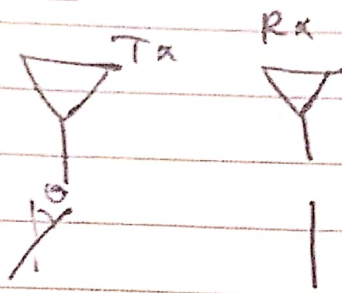 Tx Rx
θ